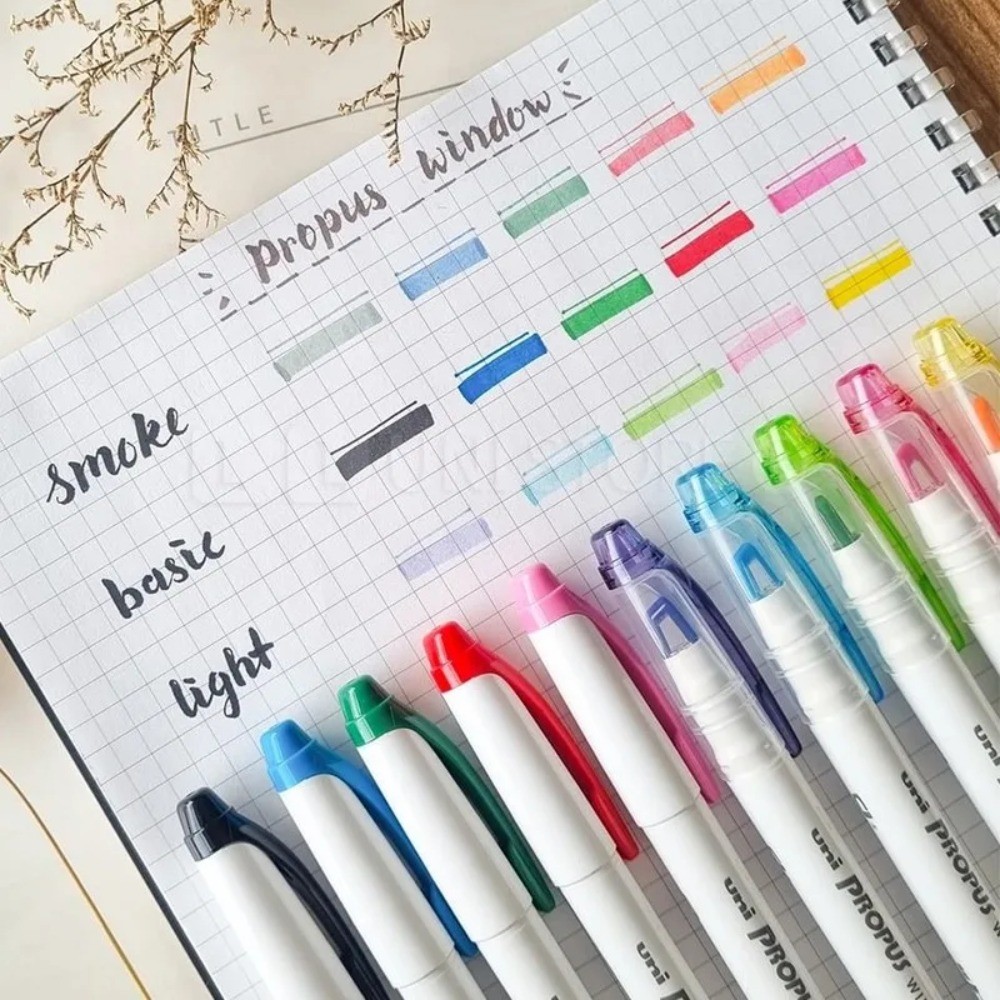 TITLE
Propus window
smoke
basic
light
uni PROPUS W
uni PROPUS W
uni PROPU
uni
uni